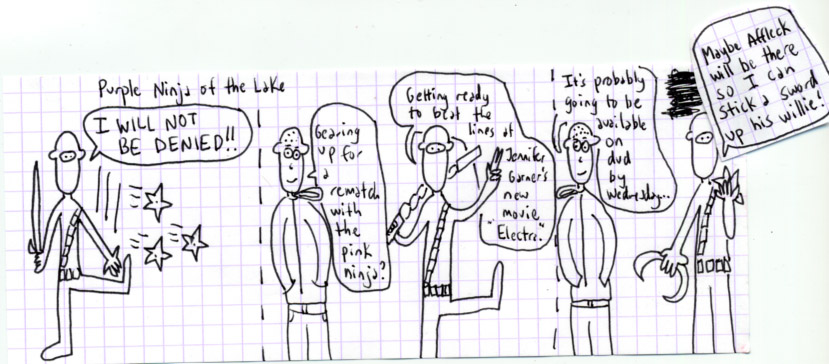 Purple Ninja of the Lake
I WILL NOT
BE DENIED!!
Gearing
up for
a
rematch
with
the
pink
ninja?
Getting ready
to beat the
lines at
Jennifer
Garner's
new
movie
"Electra."
It's probably
going to be
available
on
dvd
by
Wednesday...
Maybe Affleck
will be there
so I can
stick a sword
up his willie!